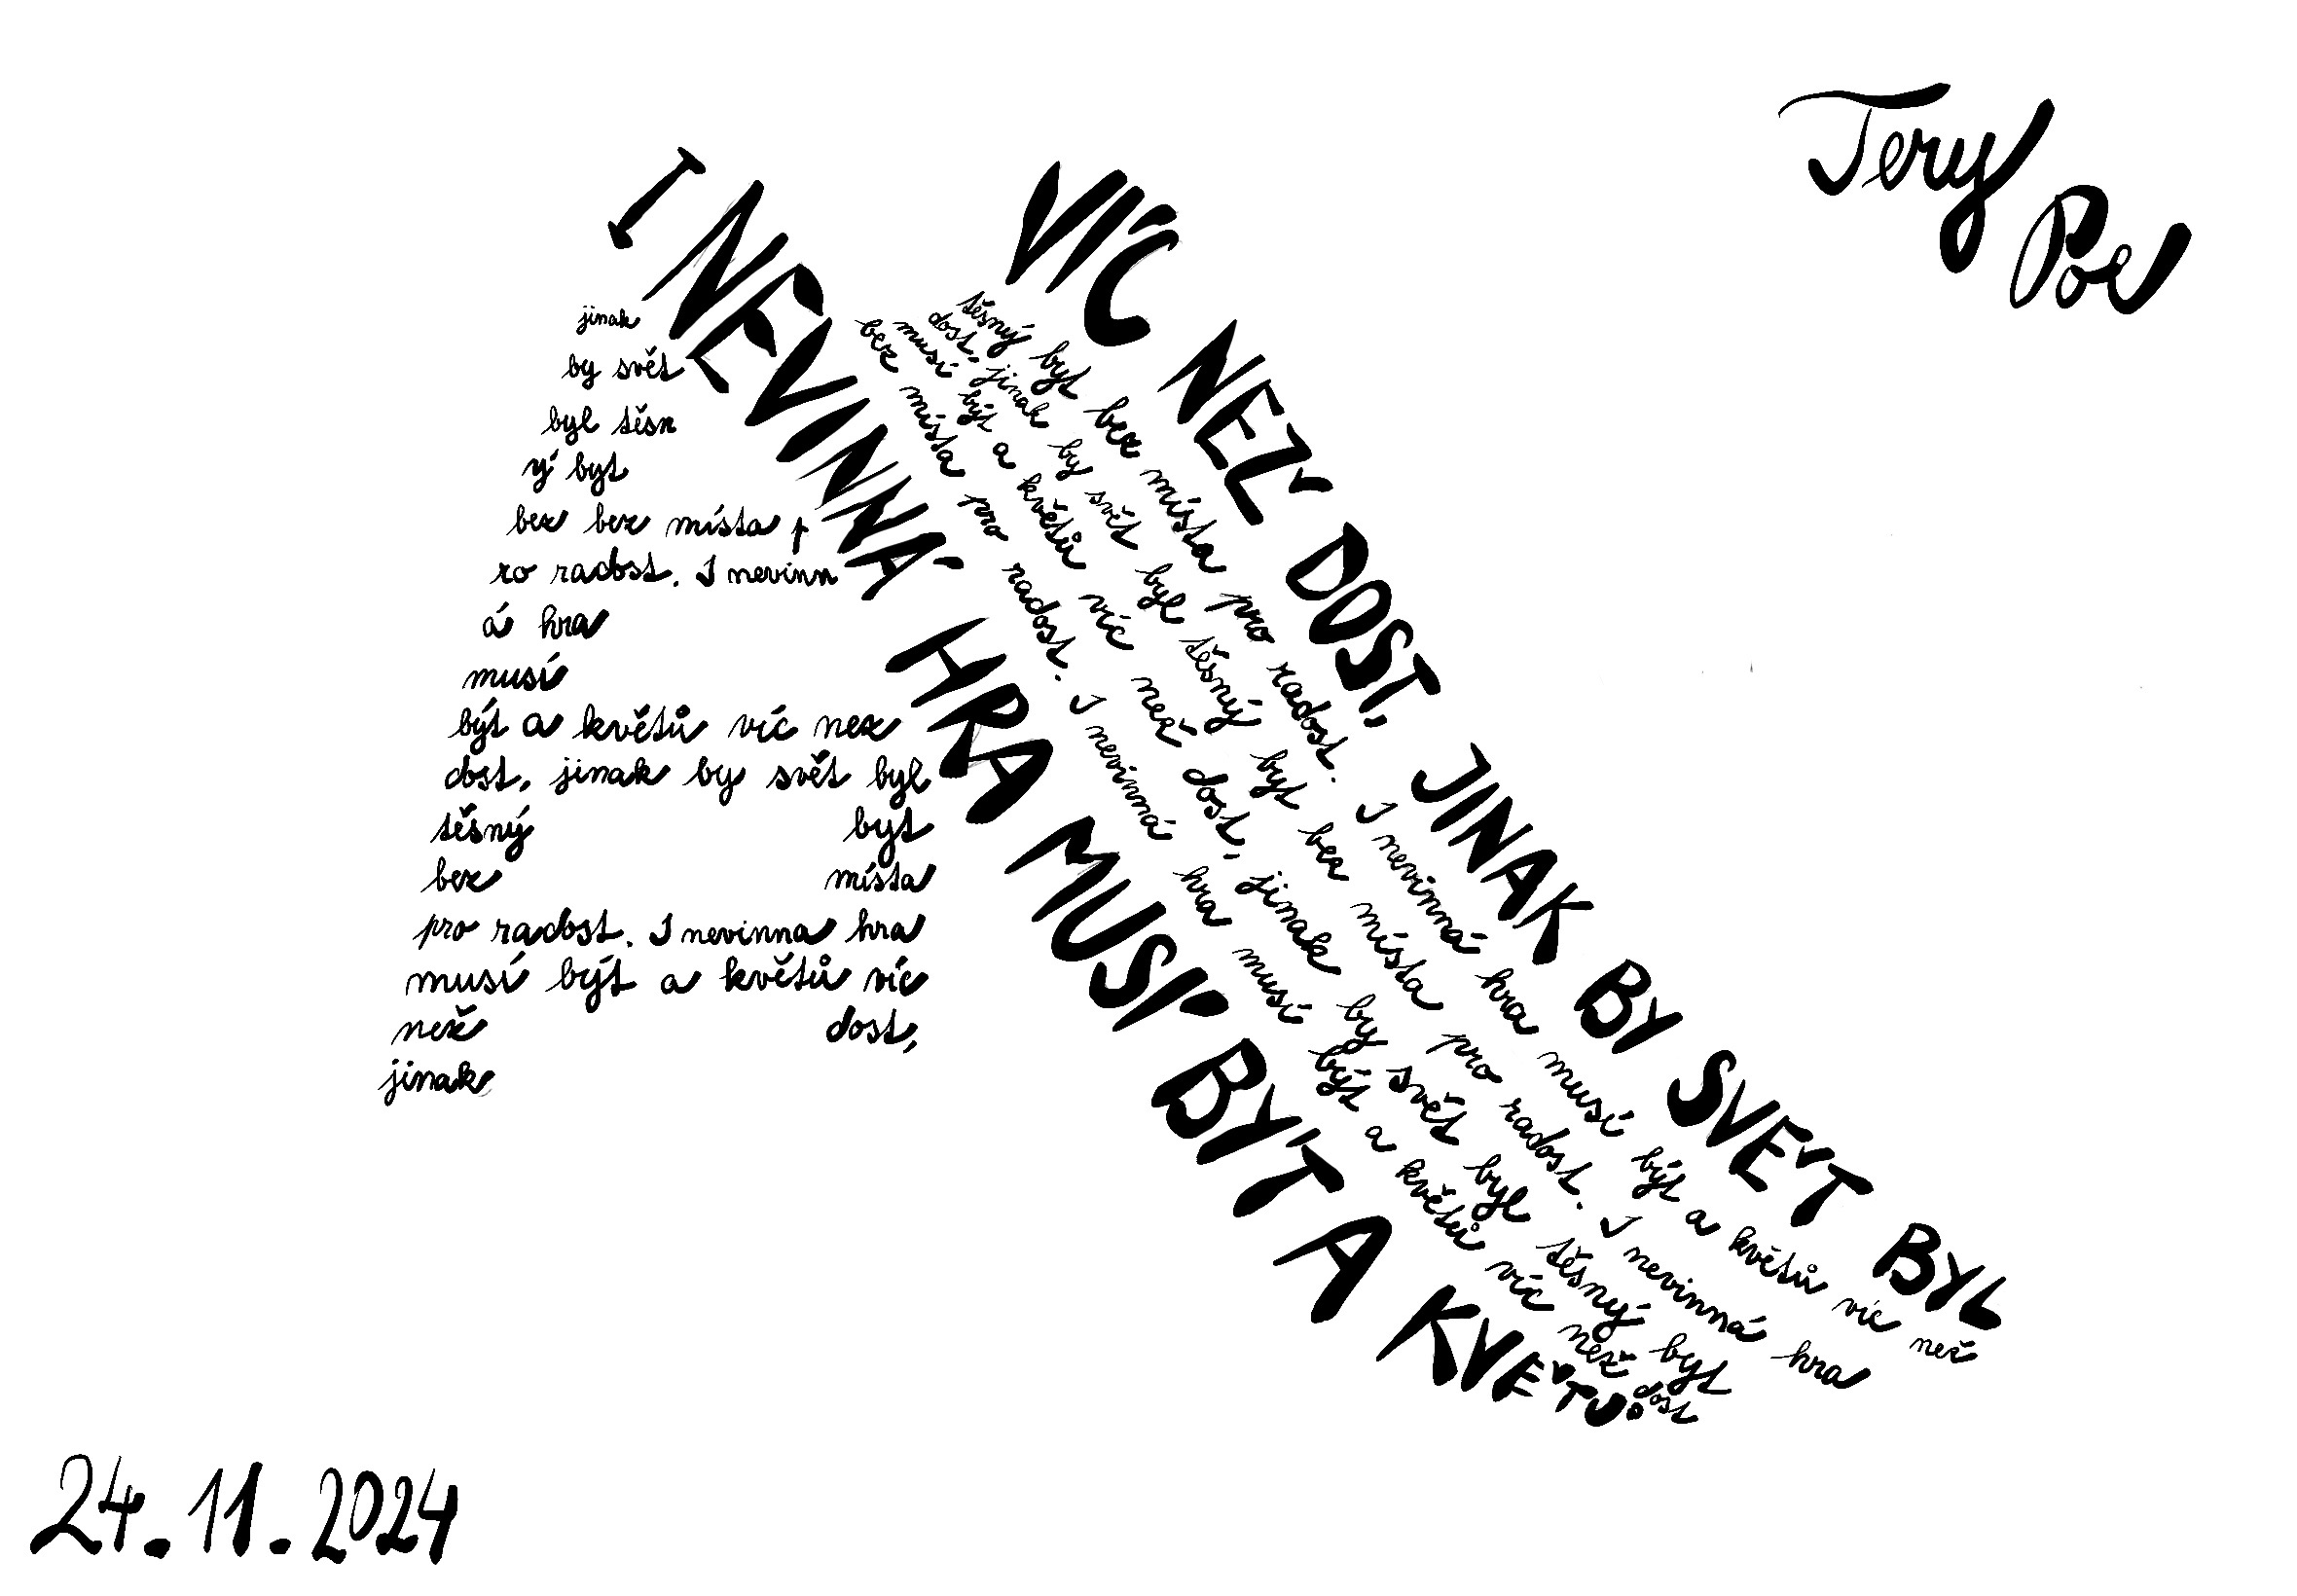 Tery
Poe
I NEVINNÁ HRA MUSÍ BÝT A KVĚTŮ
VÍC NEŽ DOST, JINAK BY SVĚT BYL
těsný byt bez místa pro radost. I nevinná hra musí být a květů víc než
dost, jinak by svět byl těsný byt bez místa pro radost. I nevinná hra
musí být a květů víc než dost, jinak by svět byl těsný byt
bez místa pro radost. I nevinná hra musí být a květů víc než dost
jinak
by svět
byl těsn
ý byt
bez bez místa p
ro radost. I nevinn
á hra
musí
být a květů víc nez
dost, jinak by svět byl
těsný byt
bez místa
pro radost. I nevinna hra
musí být a květů víc
než dost,
jinak
24.11.2024